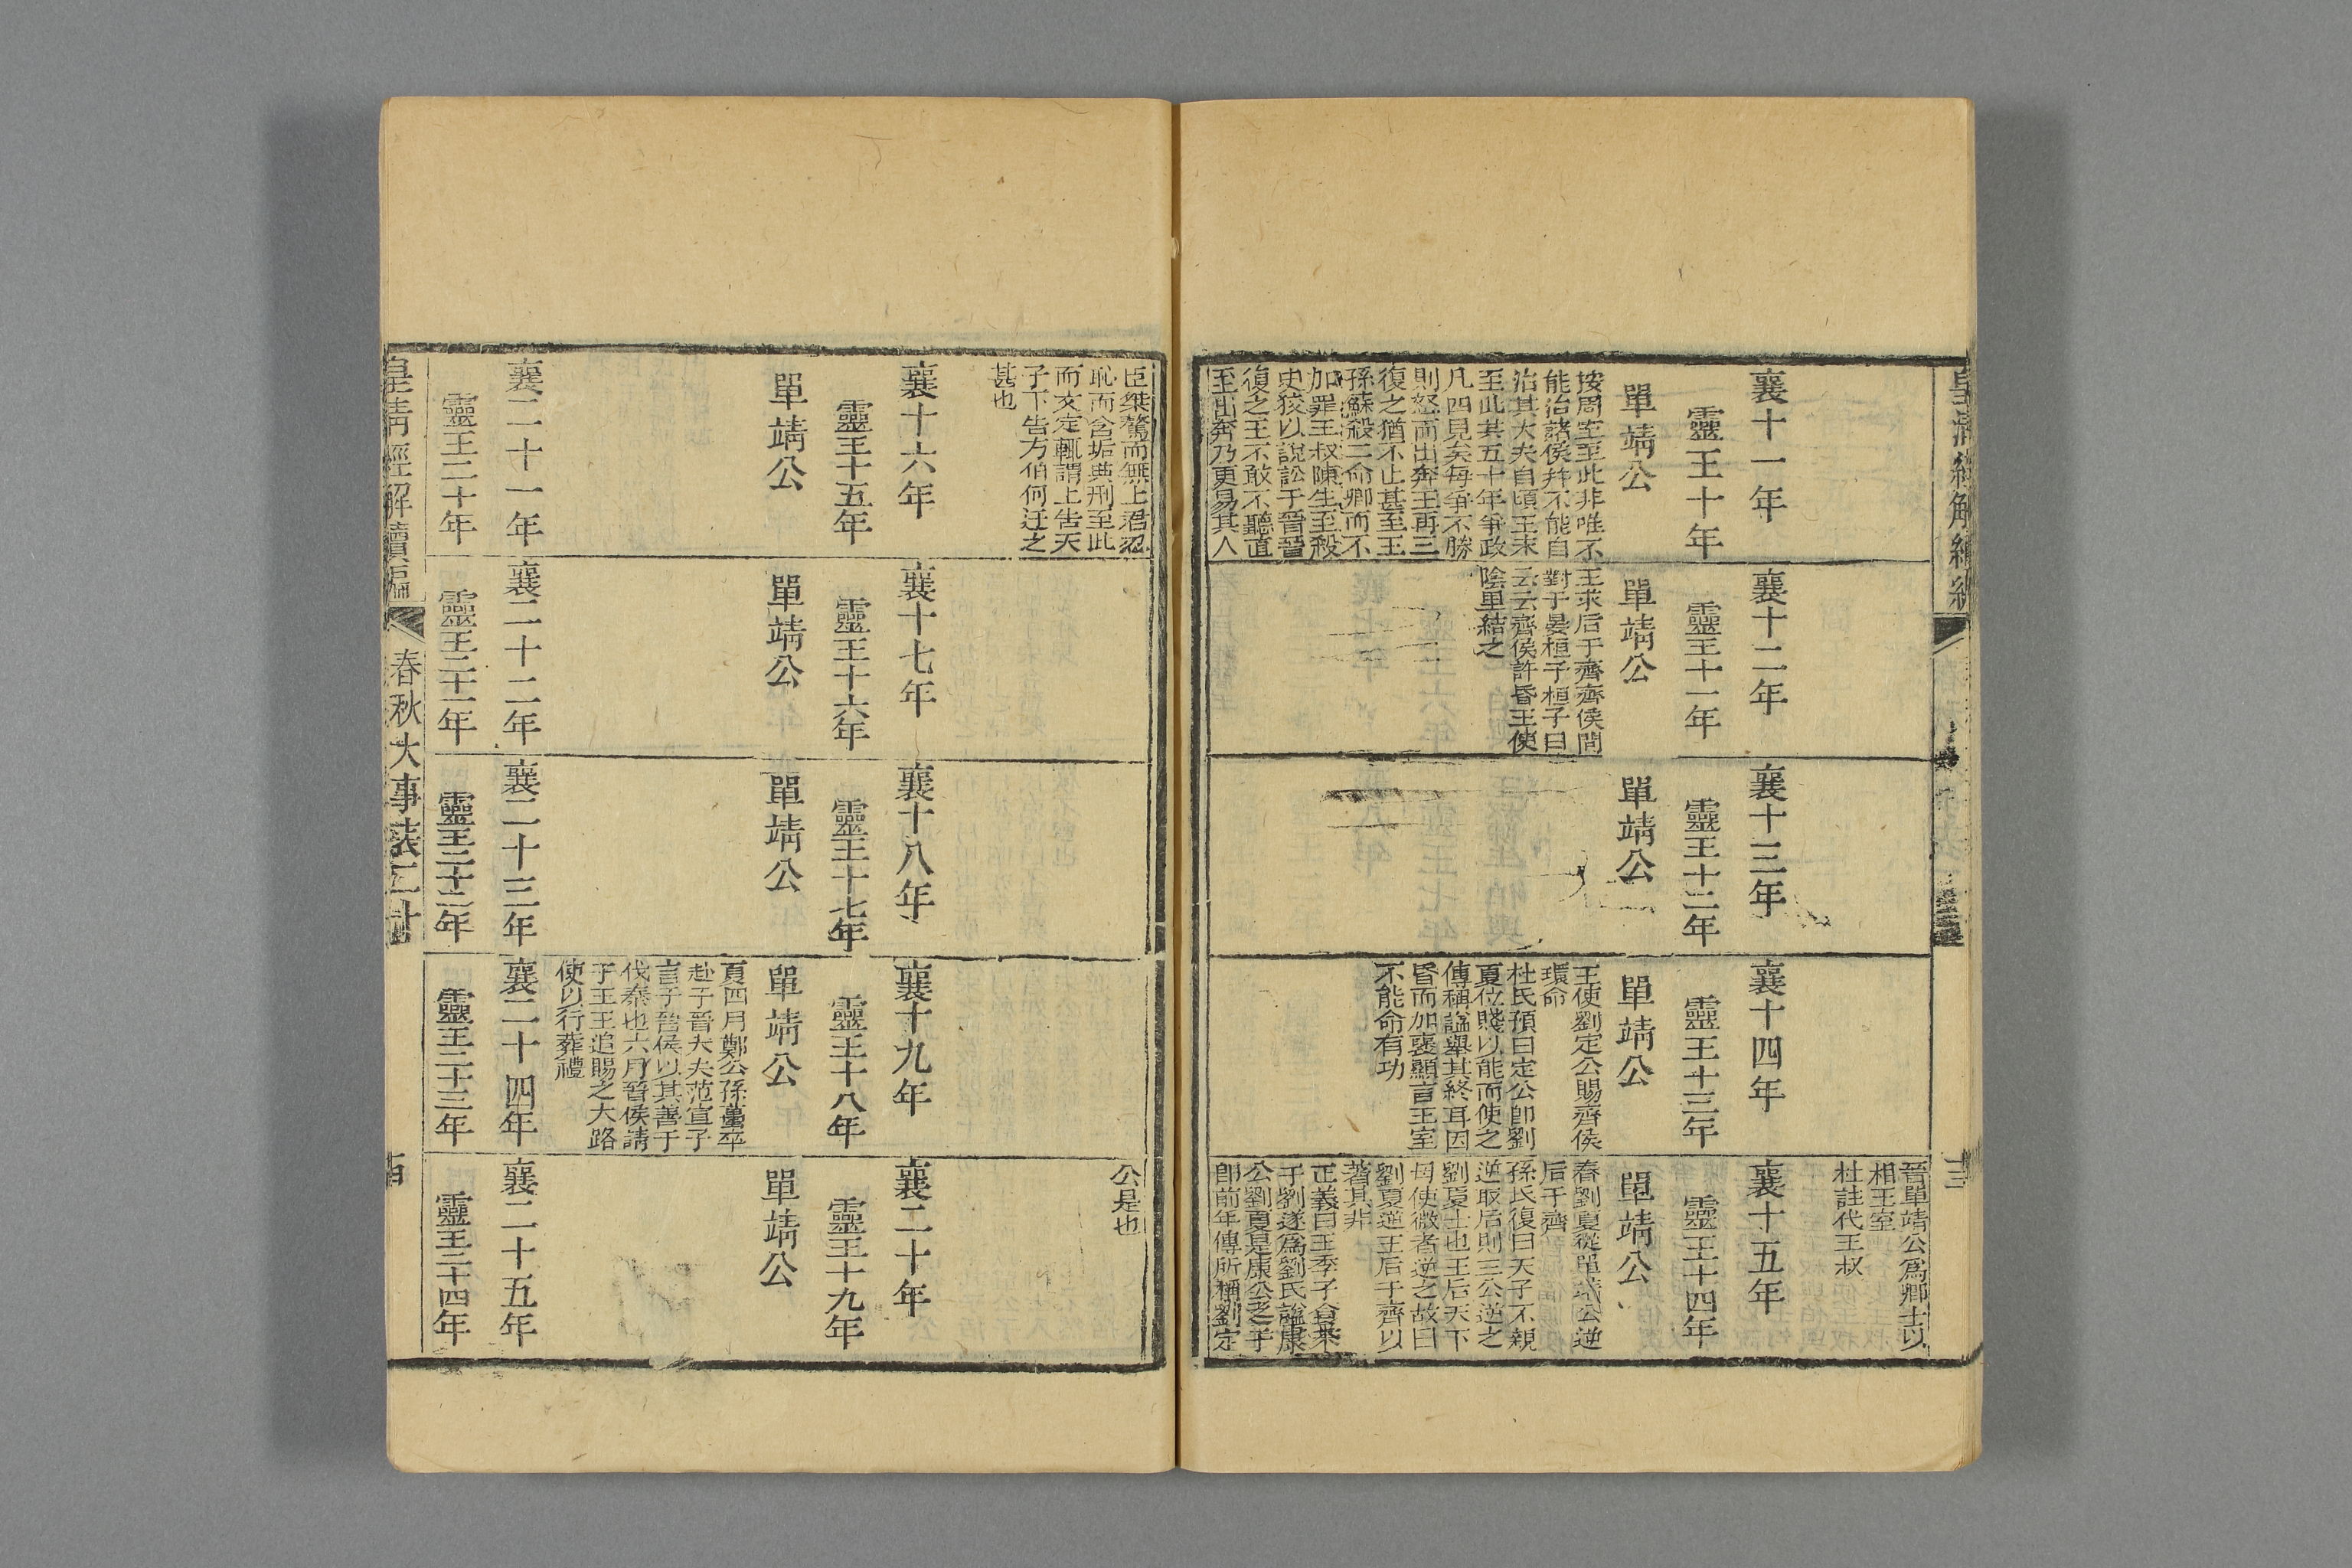 襄十一年
靈王十年
單靖公
按周室至此非唯不
能治諸侯幷不能自
治其大夫自頃王末
至此其五十年爭政
凡四見矣每爭不勝
則怒而出奔王再三
復之猶不止甚至王
孫蘇殺二命卿而不
加罪王叔陳生至殺
史狡以說訟于晉晉
復之王不敢不聽直
至出奔乃更易其人
襄十二年
靈王十一年
單靖公
王求后于齊齊侯問
對于晏桓子桓子曰
云云齊侯許昏王使
陰里結之
襄十三年
靈王十二年
單靖公
襄十四年
靈王十三年
單靖公
王使劉定公賜齊侯
環命
杜氏預曰定公卽劉
夏位賤以能而使之
傳稱諡舉其終耳因
昏而加襃顯言王室
不能命有功
晉單靖公爲卿士以
相王室
杜註代王叔
襄十五年
靈王十四年
單靖公
春劉夏從單靖公逆
后于齊
孫氏復曰天子不親
逆取后則三公逆之
劉夏士也王后天下
母使微者逆之故曰
劉夏逆王后于齊以
著其非
正義曰王季子食采
于劉遂爲劉氏諡康
公劉夏是康公之子
卽前年傳所稱劉定
臣桀驁而無上君忍
恥而含垢典刑至此
而文定輒謂上告天
子下告方伯何迂之
甚也
襄十六年
靈王十五年
單靖公
襄二十一年
靈王二十年
襄十七年
靈王十六年
單靖公
襄二十二年
靈王二十一年
襄十八年
靈王十七年
單靖公
襄二十三年
靈王二十二年
襄十九年
靈王十八年
單靖公
夏四月鄭公孫蠆卒
赴于晉大夫范宣子
言于晉侯以其善于
伐秦也六月晉侯請
于王王追賜之大路
使以行葬禮
襄二十四年
靈王二十三年
公是也
襄二十年
靈王十九年
單靖公
襄二十五年
靈王二十四年
皇清經解續編
春秋大事表二十